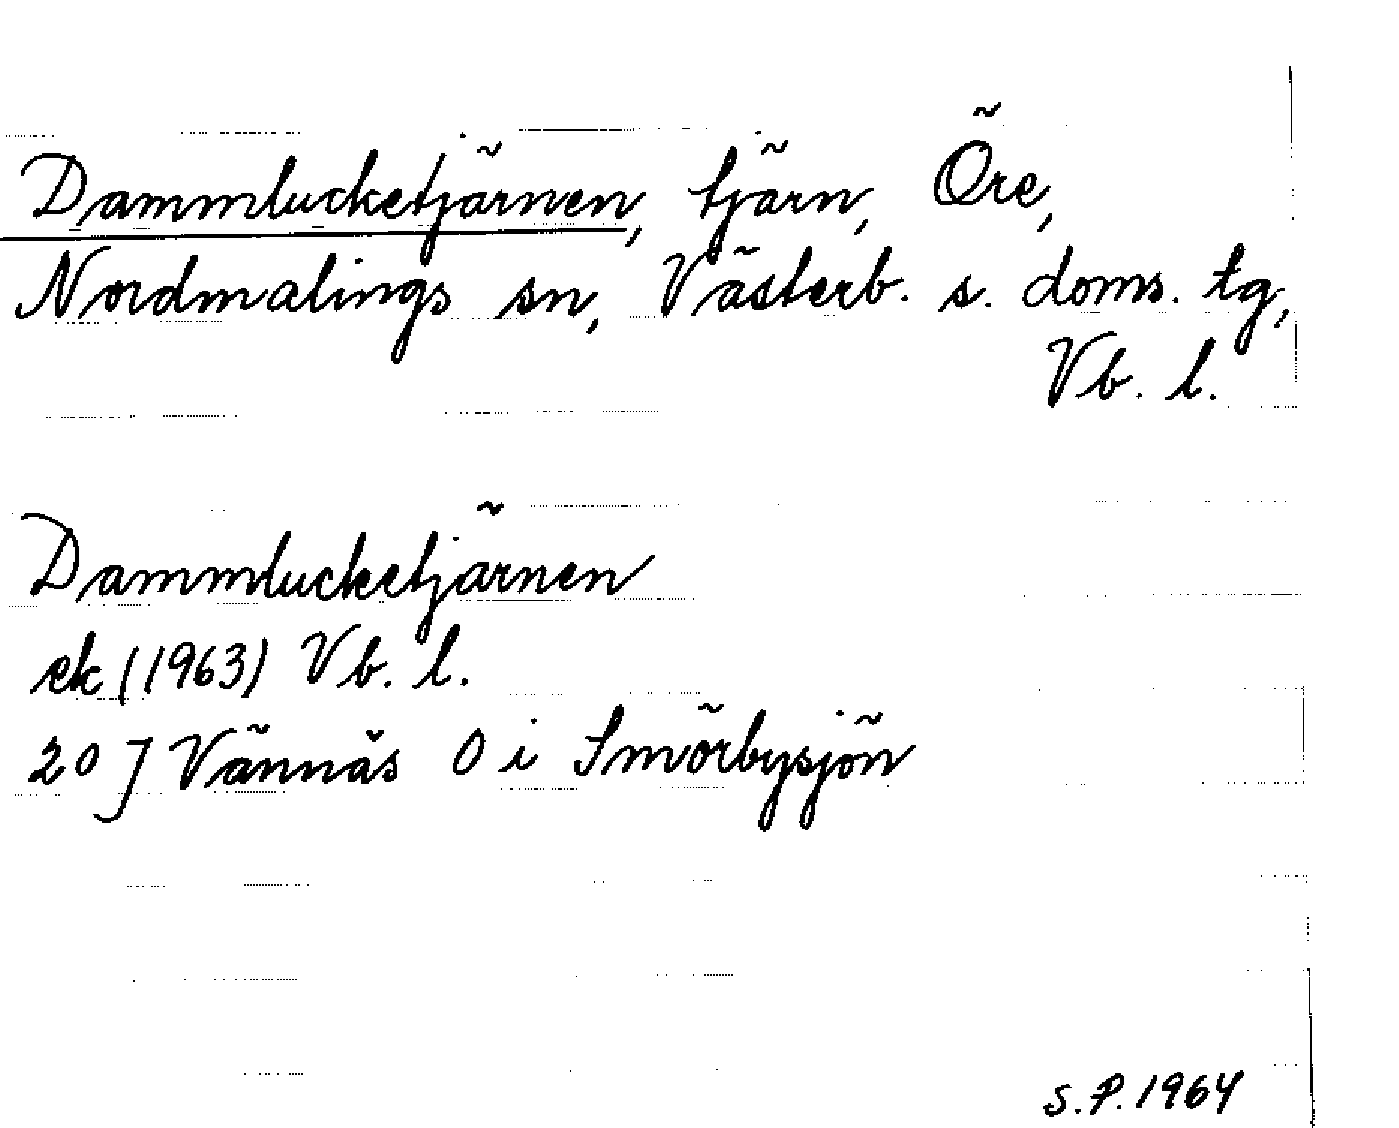 Dammlucketjärnen, tjärn, Öre,
Nordmalings sn, Västerb. s. doms. tg,
Vb. l.
Dammlucketjärnen
ek (1963) Vb. l.
20 J Vännäs O i Smörbysjön
S.P. 1964